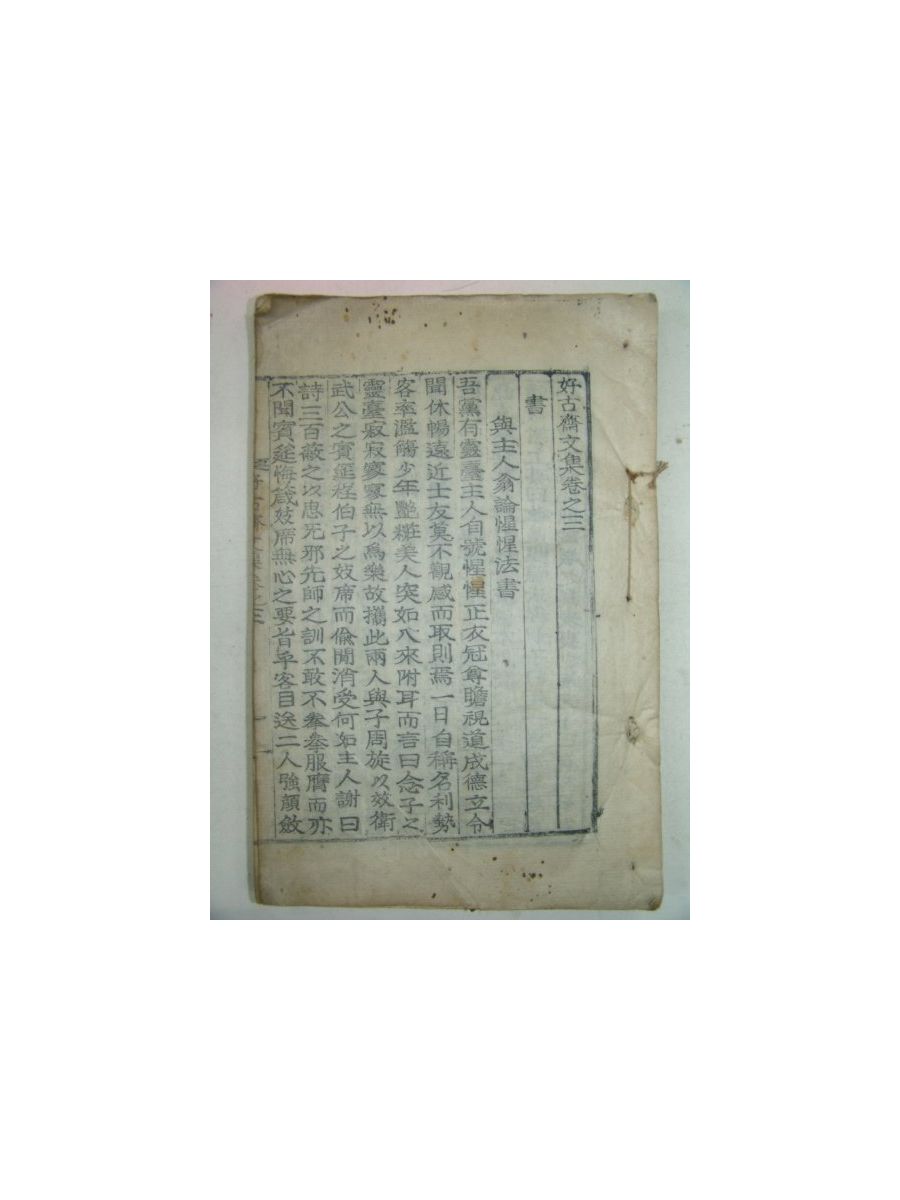 好古齋文集卷之三
書
與主人翁論惺惺法書
吾黨有靈臺主人自號惺惺正衣冠尊瞻視道成德立令
聞休暢遠近士友莫不觀感而取則焉一日自稱名利勢
客率濫觴少年艷粧美人突如入來附耳而言曰念子之
靈臺寂寂寥寥無以爲樂故攜此兩人與子周旋以效衛
武公之賓筵程伯子之妓席而偸閒消受何如主人謝曰
詩三百蔽之以思无邪先師之訓不敢不拳拳服膺而亦
不聞賓筵悔箴妓席無心之要旨乎客目送二人強顔斂